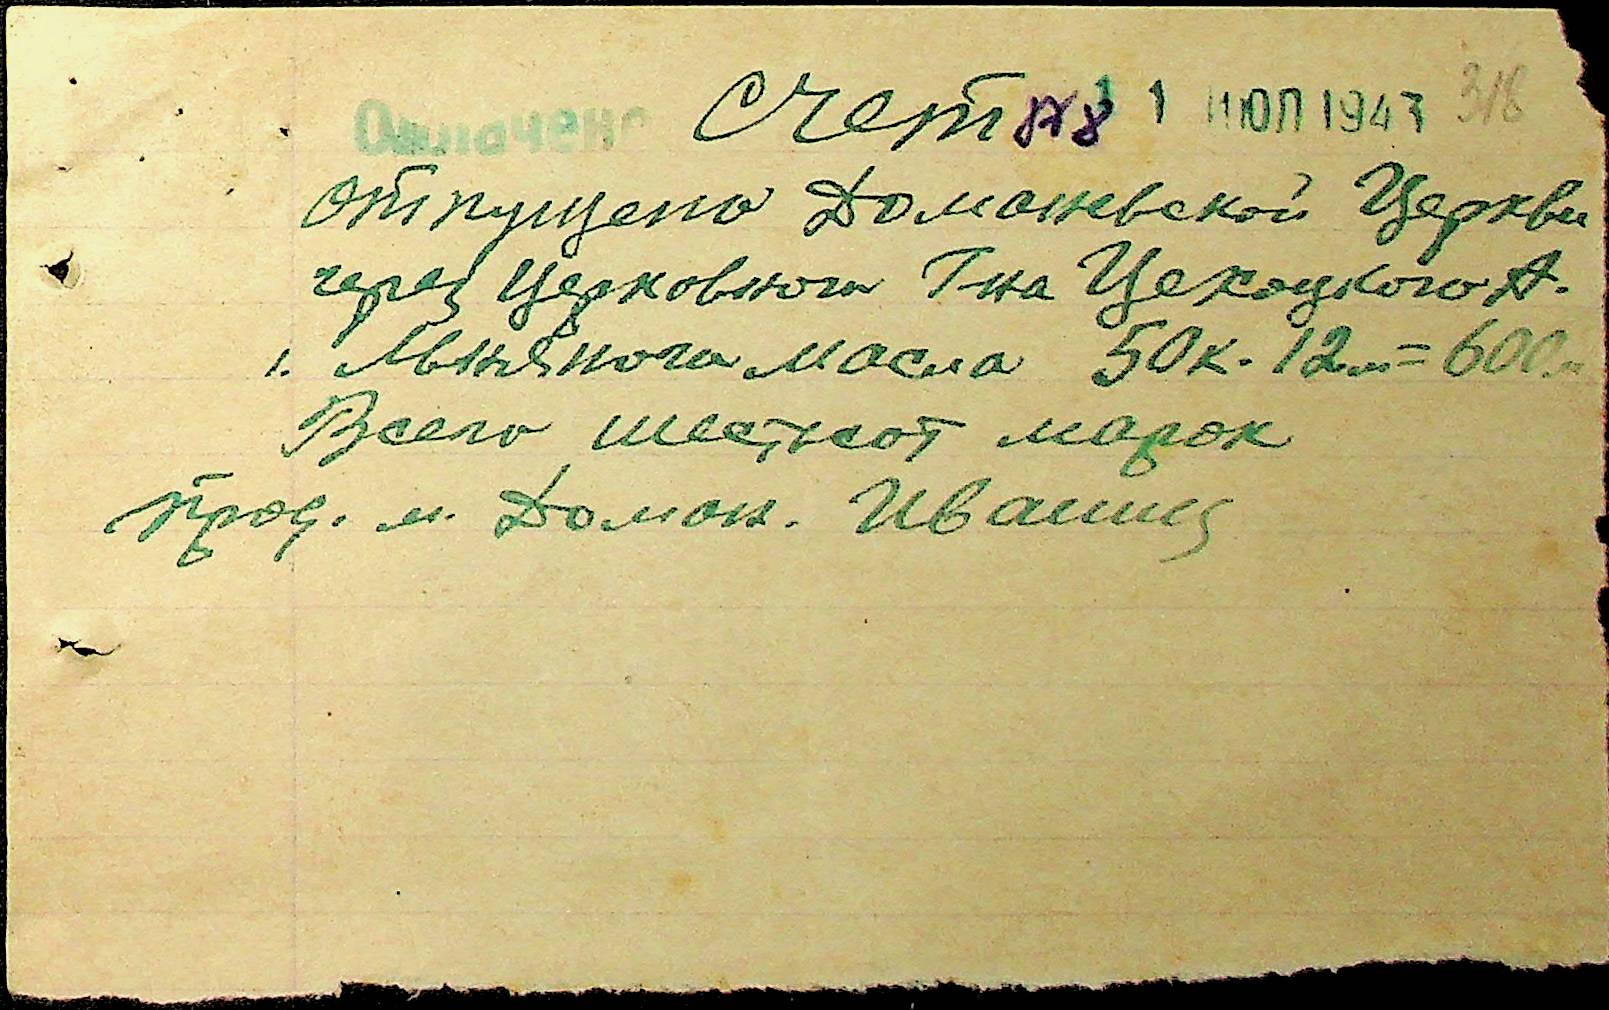 Оплачено Счет 11 ИЮЛ 1943 318
отпущено Доманевской Церкви
через Церковного Гна Цехоцкого А.
1. Льняного масла 50к. 12м = 600м
Всего шестсот марок
прод. м. Доман. Иваниц